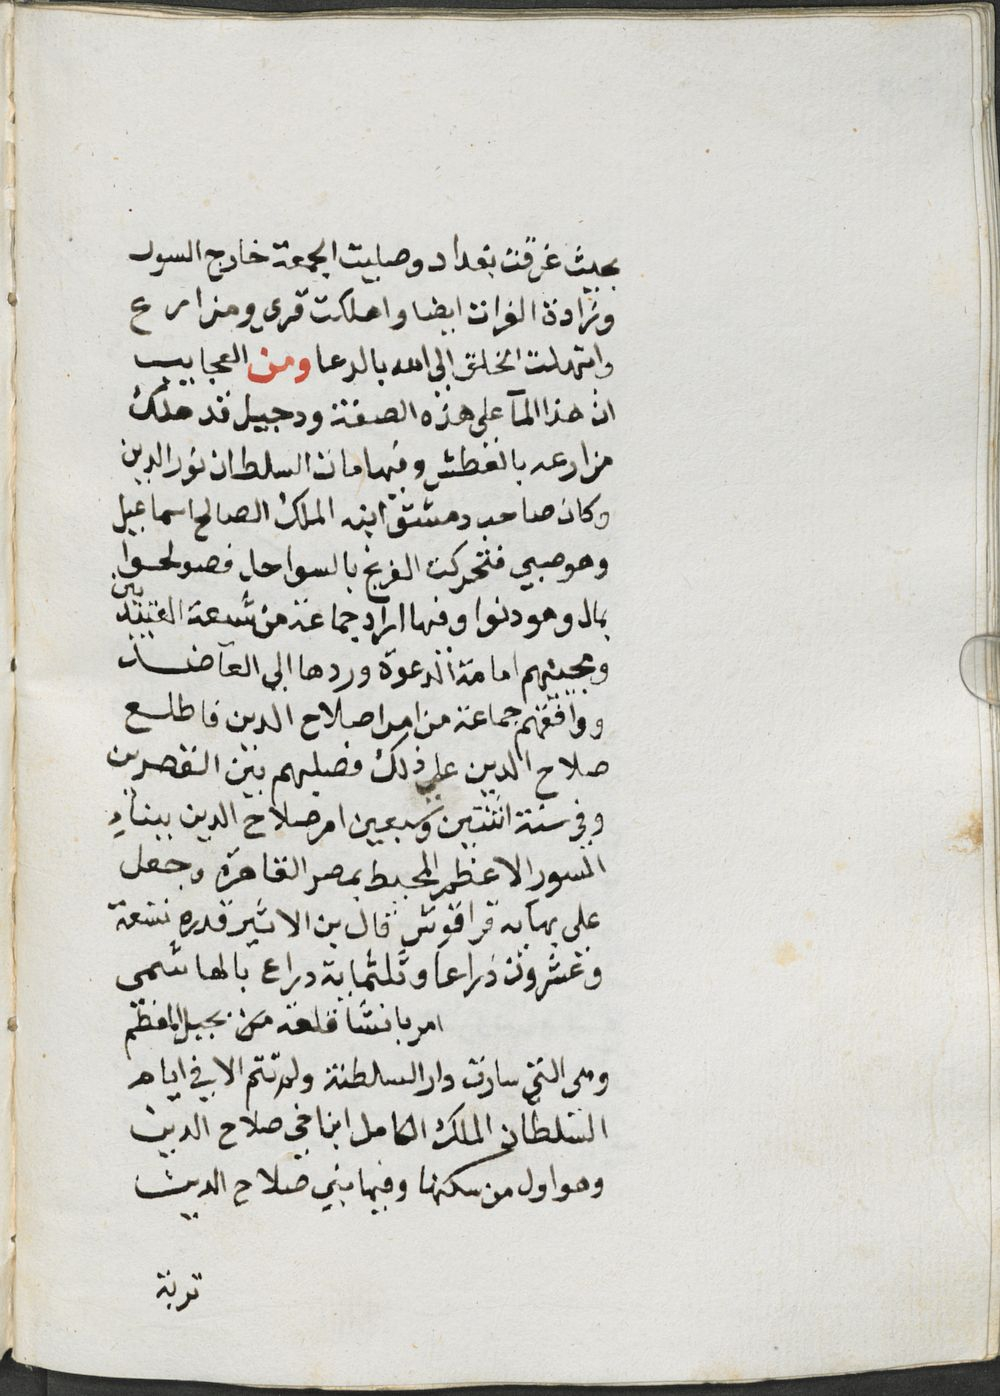 بحيث غرقت بغداد وصليت الجمعة خارج السور
وزادة الفرات ايضا واهلكت قري ومزارع
وابتهلت الخلق الى الله بالدعا ومن العجايب
ان هذا المآ على هذه الصفة ودجيل قد هلكت
مزارعه بالعطش وفيها مات السلطان نور الدين
وكان صاحب دمشق ابنه الملك الصالح اسماعيل
وهو صبي فتحركت الفرنج بالسواحل فصولحوا
بمال وهودنوا وفيها اراد جماعة من شيعة العبيديين
ومحبيهم اقامة الدعوة وردها الى العآضد
ووافقهم جماعة من امرا صلاح الدين فاطلع
صلاح الدين على ذلك فصلبهم بين القصرين
وفي سنة اثنتين وسبعين امر صلاح الدين ببناء
السور الاعظم المحيط بمصر القاهرة وجعل
على بهايه قراقوش قال بن الاثير قدره تسعة
وعشرون ذراعا وثلثماية دراع بالهاشمى
امر بانشا قلعة من بجبل المقطم
وهى التي سارت دار السلطنة ولم تتم الا في ايام
السلطان الملك الكامل ابن اخي صلاح الدين
وهو اول من سكنها وفيها بني صلاح الدين
تربة